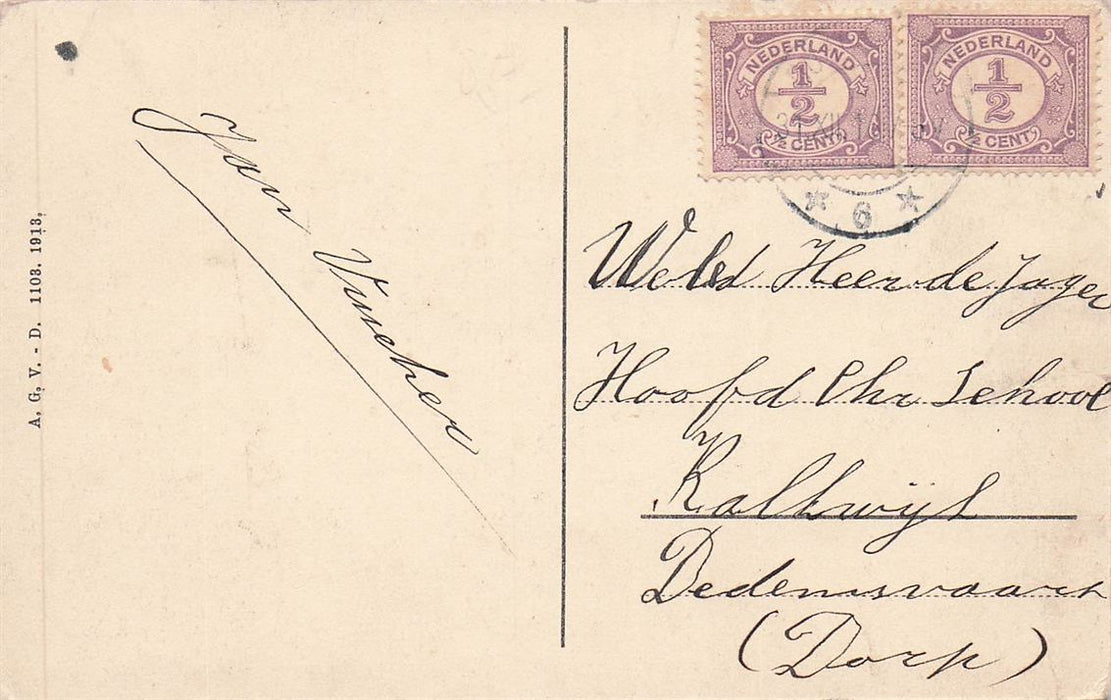 A. G. V. - D. 1103. 1913.
Jan Visscher
NEDERLAND
1/2
½ CENT
NEDERLAND
1/2
½ CENT
6
Heer de Jager
Hoofd Chr School
Kalkwijk
Dedemsvaart
(Dorp)